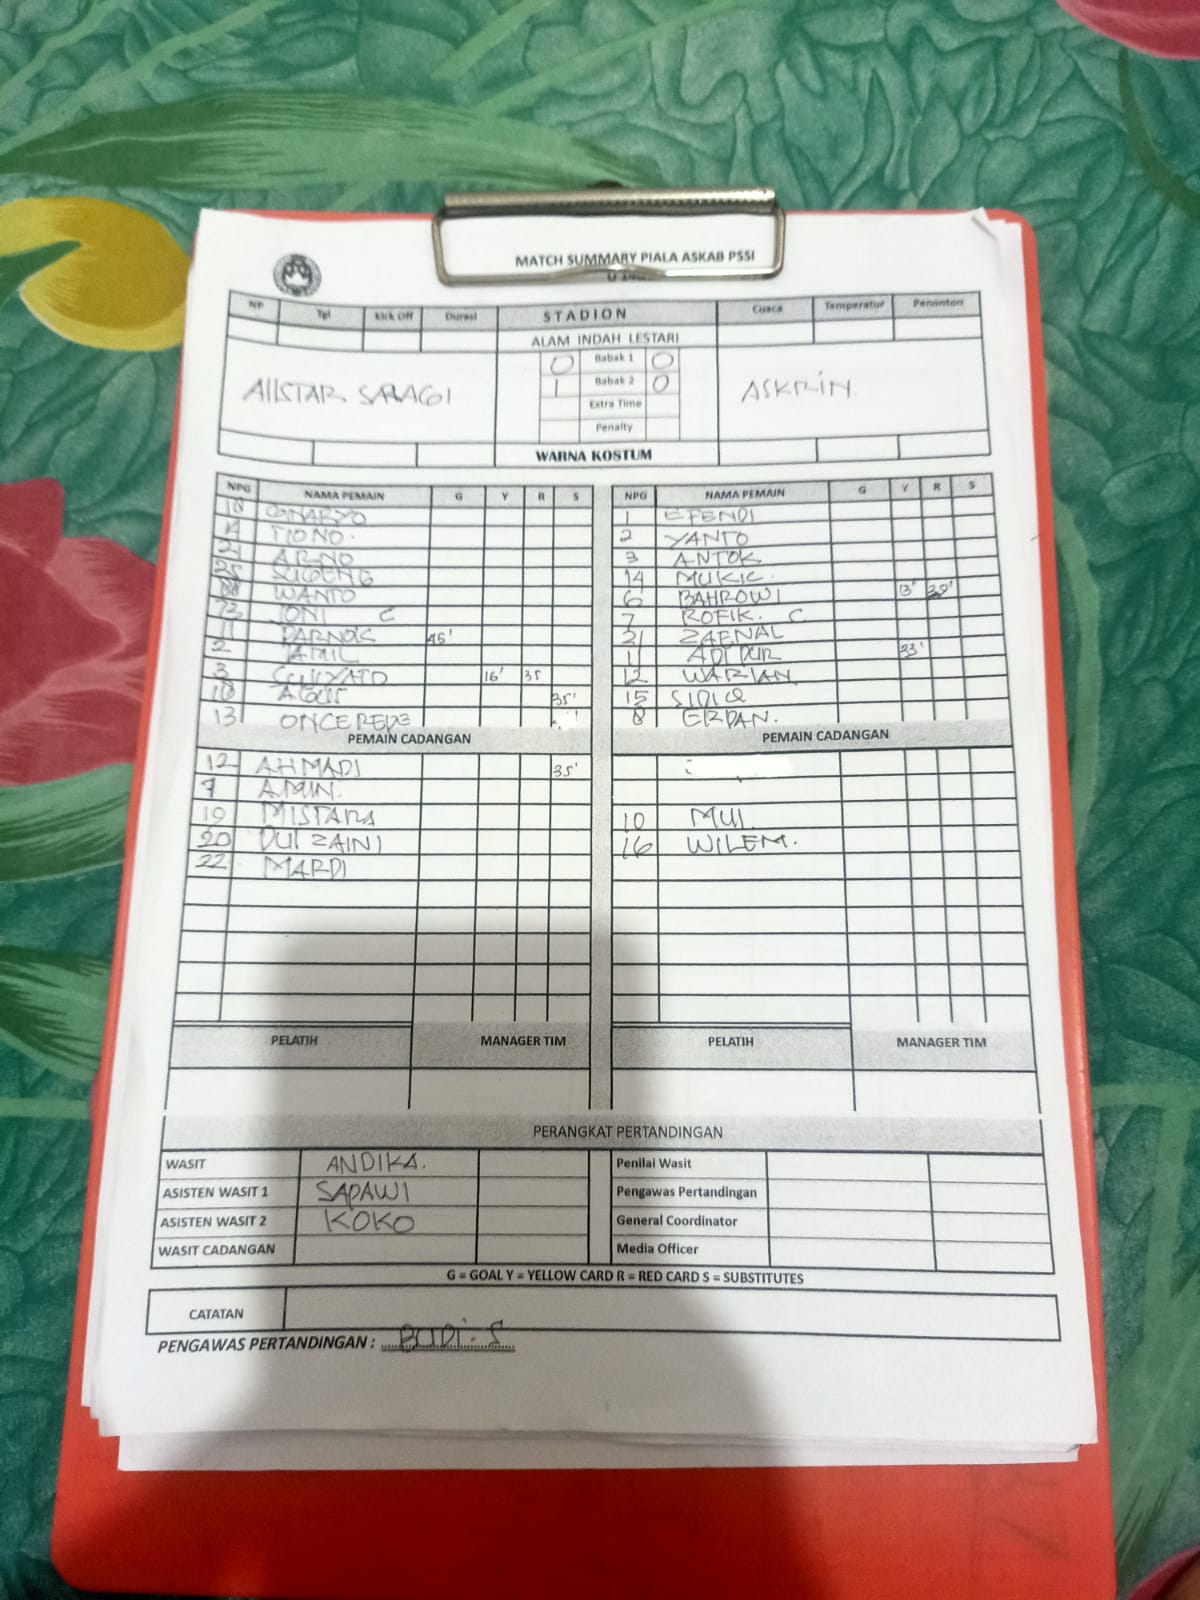 MATCH SUMMARY PIALA ASKAB PSSI
NP Tgl Kick Off Durasi STADION Cuaca Temperatur Penonton
ALAM INDAH LESTARI
0 Babak 1 0
AllSTAR SARAGI 1 Babak 2 0 ASKRIN.
Extra Time
Penalty
WARNA KOSTUM
NPG NAMA PEMAIN G Y R S NPG NAMA PEMAIN G Y R S
1 EFENDI
TIONO. 2 YANTO
ARNO 3 ANTOK
SUGENG 14 MUKIC.
WANTO 6 BAHROWI 13'
JONI C 7 ROFIK. C
11 PARNOK 45' 21 ZAENAL
2 JAMIL 11 ADI PUR 33'
3 16' 35 12 WARIAN
AGUS 35' 15 SIDIQ
13 ONCE REPE 8 ERPAN.
PEMAIN CADANGAN PEMAIN CADANGAN
12 AHMADI 35'
7 AMIN.
19 MISTARA 10 MUL
20 DUL ZAINI 16 WILEM.
22 MARDI
PELATIH MANAGER TIM PELATIH MANAGER TIM
PERANGKAT PERTANDINGAN
WASIT ANDIKA. Penilai Wasit
ASISTEN WASIT 1 SAPAWI Pengawas Pertandingan
ASISTEN WASIT 2 KOKO General Coordinator
WASIT CADANGAN Media Officer
G = GOAL Y = YELLOW CARD R = RED CARD S = SUBSTITUTES
CATATAN
PENGAWAS PERTANDINGAN : BUDI. S